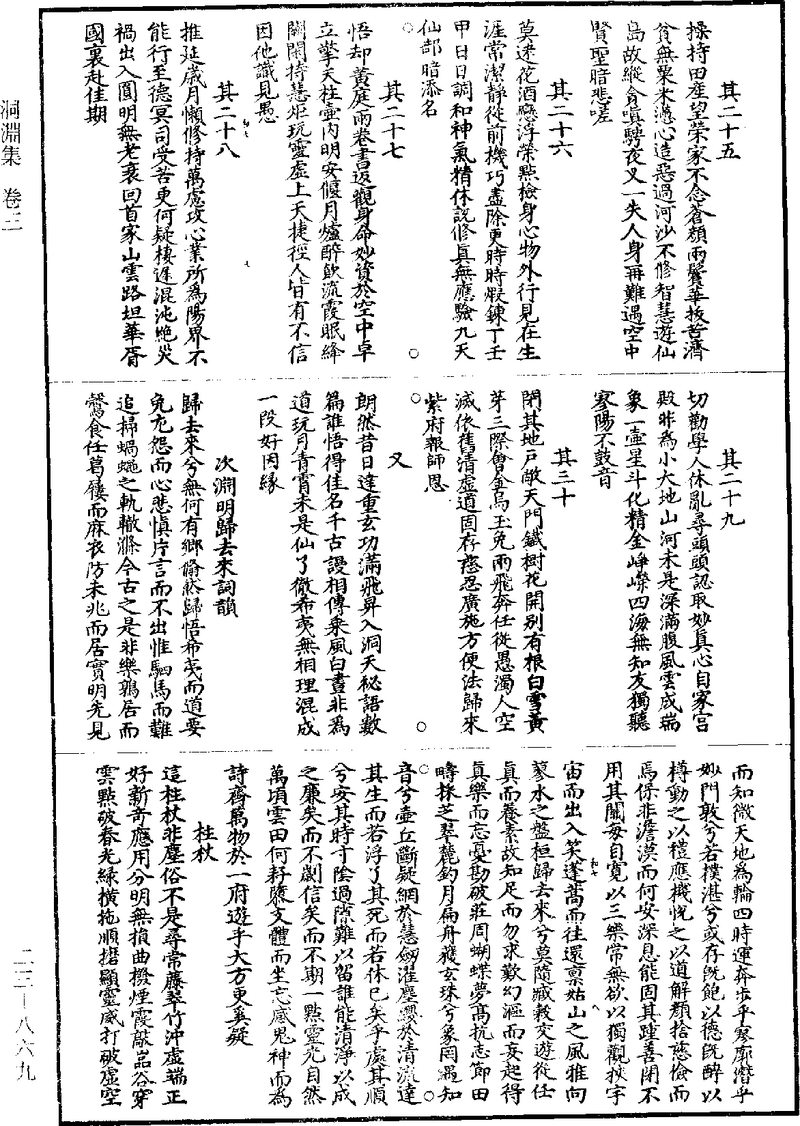 其二十五
操持田產望榮家不念蒼顏兩鬢華拔苦濟
貧無粟米慳心造惡過河沙不修智慧遊仙
島故縱貪嗔騁夜叉一失人身再難遇空中
賢聖暗悲嗟
其二十六
莫迷花酒戀浮榮點檢身心物外行見在生
涯常潔靜從前機巧盡除更時時煅鍊丁壬
甲日日調和神氣精休說修真無應驗九天
仙部暗添名
其二十七
悟却黃庭兩卷書返觀身命妙資於空中卓
立擎天柱壺內明安偃月爐醉飲流霞眠絳
闕閑持慧炬玩靈虛上天捷徑人皆有不信
因他識見愚
其二十八
推延歲月懶修持萬處攻心業所為陽界不
能行至德冥司受苦更何疑棲遲混沌絕災
禍出入圓明無老衰回首家山雲路坦華胥
國裏赴佳期
其二十九
切勸學人休亂尋頭頭認取妙真心自家宮
殿非為小大地山河未是深滿腹風雲成瑞
象一壺星斗化精金崢嶸四海無知友獨聽
寥陽不鼓音
其三十
閉其地戶敞天門鐵樹花開別有根白雪黃
芽三際會金烏玉兔兩飛奔任從愚濁人空
滅依舊清虛道固存慈忍廣施方便法歸來
紫府報師恩
又
朗然昔日達重玄功滿飛昇入洞天秘語數
篇誰悟得佳名千古謾相傳乘風白晝非為
道玩月青霄未是仙了徹希夷無相理混成
一段好因緣
次淵明歸去來詞韻
歸去來兮無何有鄉翛然歸悟希夷而道要
免尤怨而心悲慎片言而不出惟駟馬而難
追掃蝸蠅之軌轍滌今古之是非樂鶉居而
鷇食任葛屨而麻衣防未兆而居實明先見
而知微天地為輪四時運奔步乎寥廓潛乎
妙門敦兮若樸湛兮或存既飽以德既醉以
樽動之以禮應機悅之以道解顏捨慈儉而
焉保非澹漠而何安深息能固其踵善閉不
用其關每自寬以三樂常無欲以獨觀挾宇
宙而出入笑蓬蒿而往還稟姑山之風雅向
蓼水之盤桓歸去來兮莫隨臧穀交遊從任
真而養素故知足而勿求歎幻漚而妄起得
真樂而忘憂勘破莊周蝴蝶夢高抗志節田
疇採芝翠麓釣月扁舟獲玄珠兮象罔遇知
音兮壺丘斷疑網於慧劒濯塵纓於清流達
其生而若浮了其死而若休已矣乎處其順
兮安其時寸陰過隙難以留誰能清淨以成
之廉矣而不劌信矣而不期一點靈光自然
萬頃雲田何耔隳支體而坐忘感鬼神而為
詩齊萬物於一府遊乎大方更奚疑
柱杖
這柱杖非塵俗不是尋常藤翠竹沖虛端正
好新奇應用分明無損曲撥煙霞敲品谷穿
雲點破春光綠橫拖順撘顯靈威打破虛空
洞淵集 卷三
二三—八六九